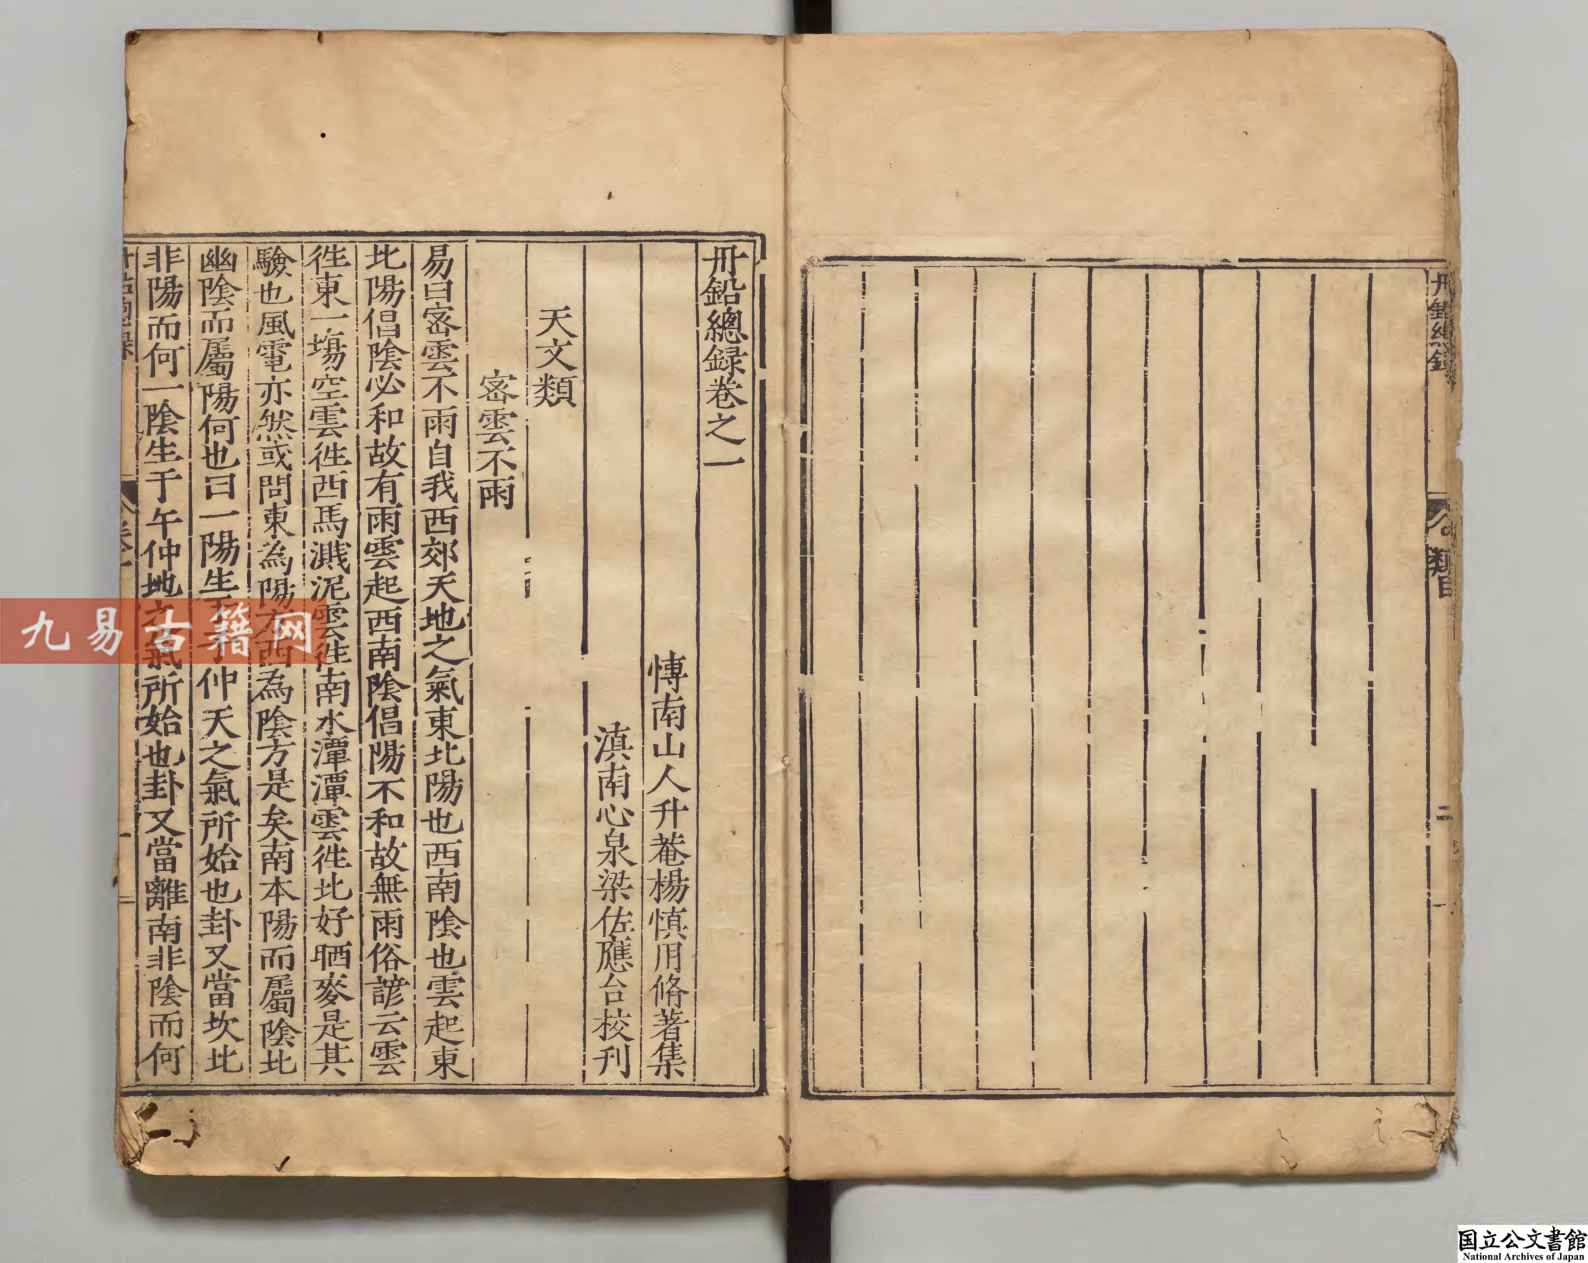 丹鉛總錄
類目
二
丹鉛總録卷之一
愽南山人升菴楊慎用脩著集
滇南心泉梁佐應台校刊
天文類
宻雲不雨
易曰宻雲不雨自我西郊天地之氣東北陽也西南陰也雲起東
北陽倡陰必和故有雨雲起西南陰倡陽不和故無雨俗諺云雲
徃東一塲空雲徃西馬濺泥雲徃南水潭潭雲徃北好晒麥是其
驗也風電亦然或問東為陽方西為陰方是矣南本陽而屬陰北
幽陰而屬陽何也曰一陽生于子仲天之氣所始也卦又當坎北
非陽而何一陰生于午仲地之氣所始也卦又當離南非陰而何
卷一
九易古籍网
国立公文書館
National Archives of Japan